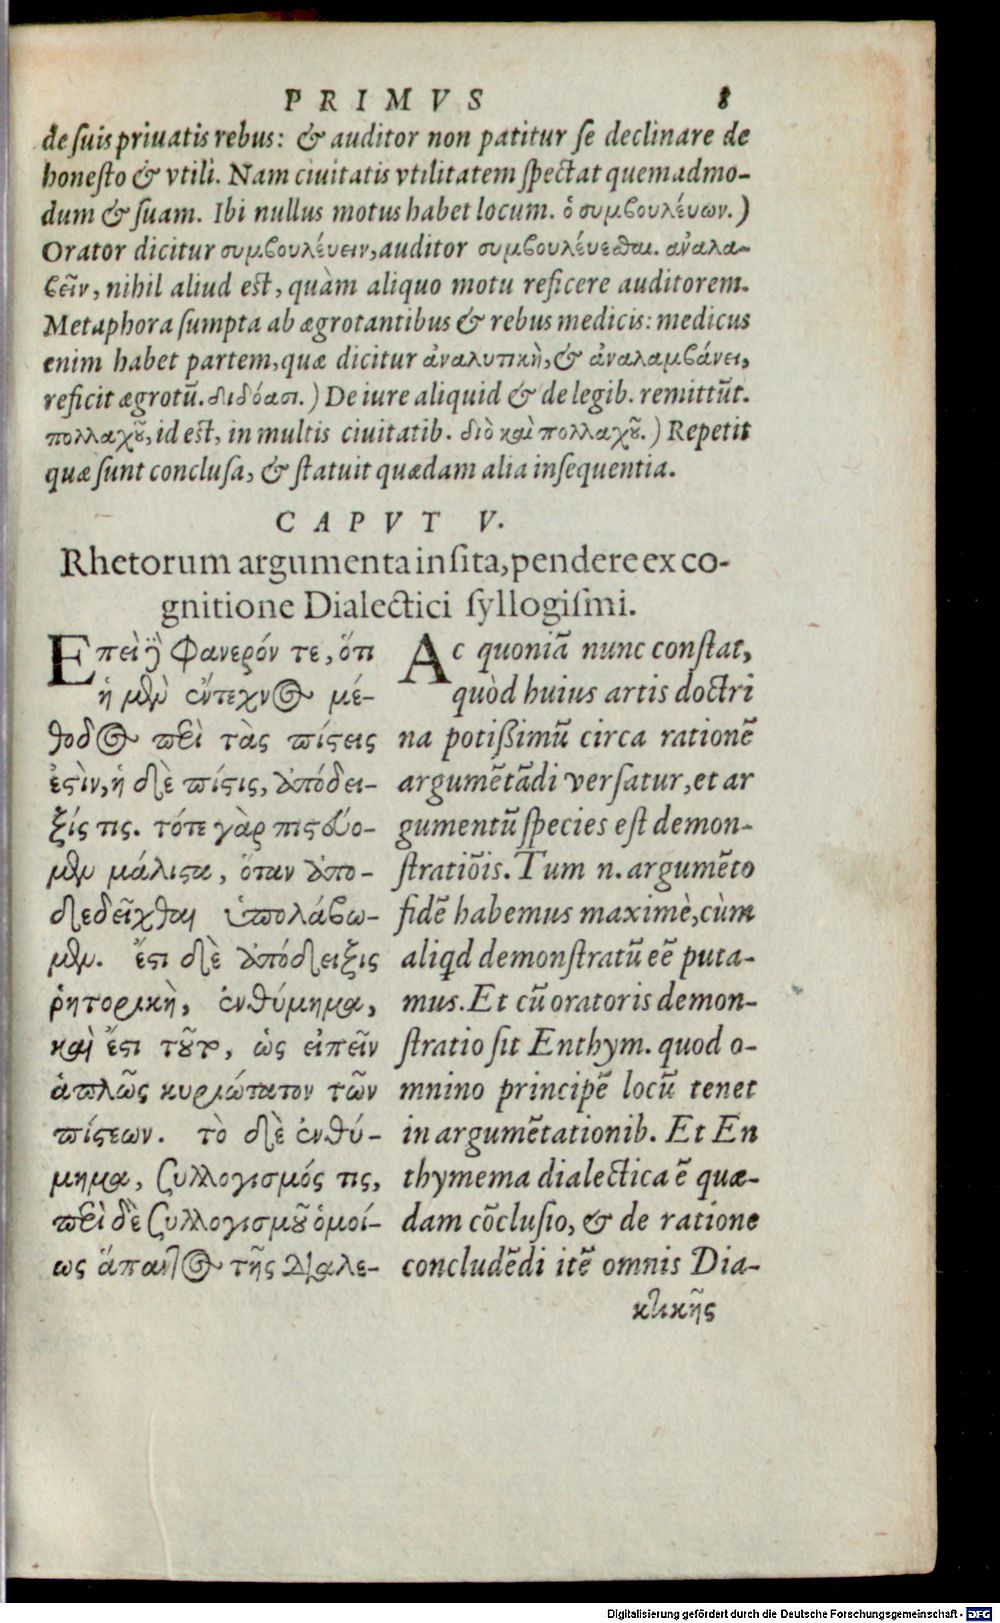 PRIMVS 8
de suis priuatis rebus: & auditor non patitur se declinare de
honesto & vtili. Nam ciuitatis vtilitatem spectat quemadmo-
dum & suam. Ibi nullus motus habet locum. ὁ συμβουλέυων.)
Orator dicitur συμβουλέυειν, auditor συμβουλέυεσθαι. ἀναλα-
βεῖν, nihil aliud est, quàm aliquo motu reficere auditorem.
Metaphora sumpta ab ægrotantibus & rebus medicis: medicus
enim habet partem, quæ dicitur ἀναλυτικὴ, & ἀναλαμβάνει,
reficit ægrotū. διδόασι.) De iure aliquid & de legib. remittūt.
πολλαχοῦ, id est, in multis ciuitatib. διὸ καὶ πολλαχοῦ.) Repetit
quæ sunt conclusa, & statuit quædam alia insequentia.
CAPVT V.
Rhetorum argumenta insita, pendere ex co-
gnitione Dialectici syllogismi.
Επεὶ δὲ φανερόν τε, ὅτι
ἡ μὲν ἔντεχνος μέ-
θοδος περὶ τὰς πίστεις
ἐστὶν, ἡ δὲ πίστις, ἀπόδει-
ξίς τις. τότε γὰρ πιστεύο-
μεν μάλιστα, ὅταν ἀπο-
δεδεῖχθαι ὑπολάβω-
μεν. ἔστι δὲ ἀπόδειξις
ῥητορικὴ, ἐνθύμημα,
καὶ ἔστι τοῦτο, ὡς εἰπεῖν
ἁπλῶς κυριώτατον τῶν
πίστεων. τὸ δὲ ἐνθύ-
μημα, συλλογισμός τις,
περὶ δὲ συλλογισμοῦ ὁμοί-
ως ἅπαντος τῆς διαλε-
Ac quoniā nunc constat,
quòd huius artis doctri
na potißimū circa rationē
argumētādi versatur, et ar
gumentū species est demon-
stratiōis. Tum n. argumēto
fidē habemus maximè, cùm
aliqd demonstratū eē puta-
mus. Et cū oratoris demon-
stratio sit Enthym. quod o-
mnino principē locū tenet
in argumētationib. Et En
thymema dialectica ē quæ-
dam cōclusio, & de ratione
concludēdi itē omnis Dia-
κτικῆς
Digitalisierung gefördert durch die Deutsche Forschungsgemeinschaft - DFG